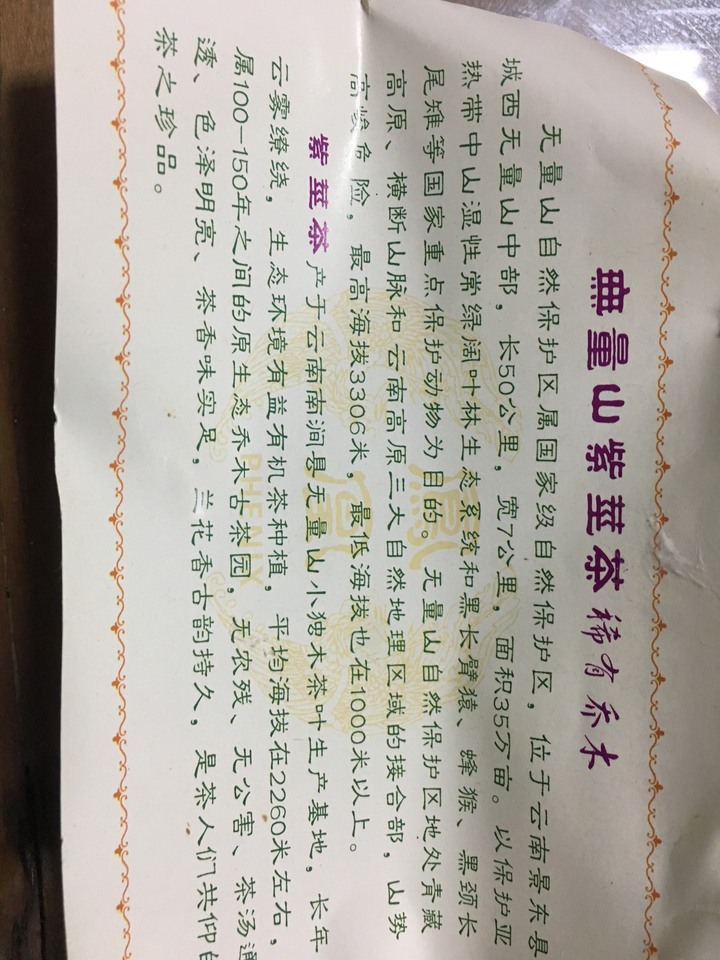 無量山紫莖茶稀有乔木
无量山自然保护区属国家级自然保护区，位于云南景东县
城西无量山中部，长50公里，宽7公里，面积35万亩。以保护亚
热带中山湿性常绿阔叶林生态系统和黑长臂猿、蜂猴、黑颈长
尾雉等国家重点保护动物为目的。无量山自然保护区地外青藏
高原、横断山脉和云南高原三大自然地理区域的接合部，山势
高峻危险，最高海拔3306米，最低海拔也在1000米以上。
紫莖茶产于云南南涧县无量山小独木茶叶生产基地，长年
云雾缭绕，生态环境有益有机茶种植，平均海拔在2260米左右，
属100-150年之间的原生态乔木古茶园，无农残、无公害、茶汤通
透、色泽明亮、茶香味实足，兰花香古韵持久，是茶人们共仰的
茶之珍品。
鳳
凰
PHENIX